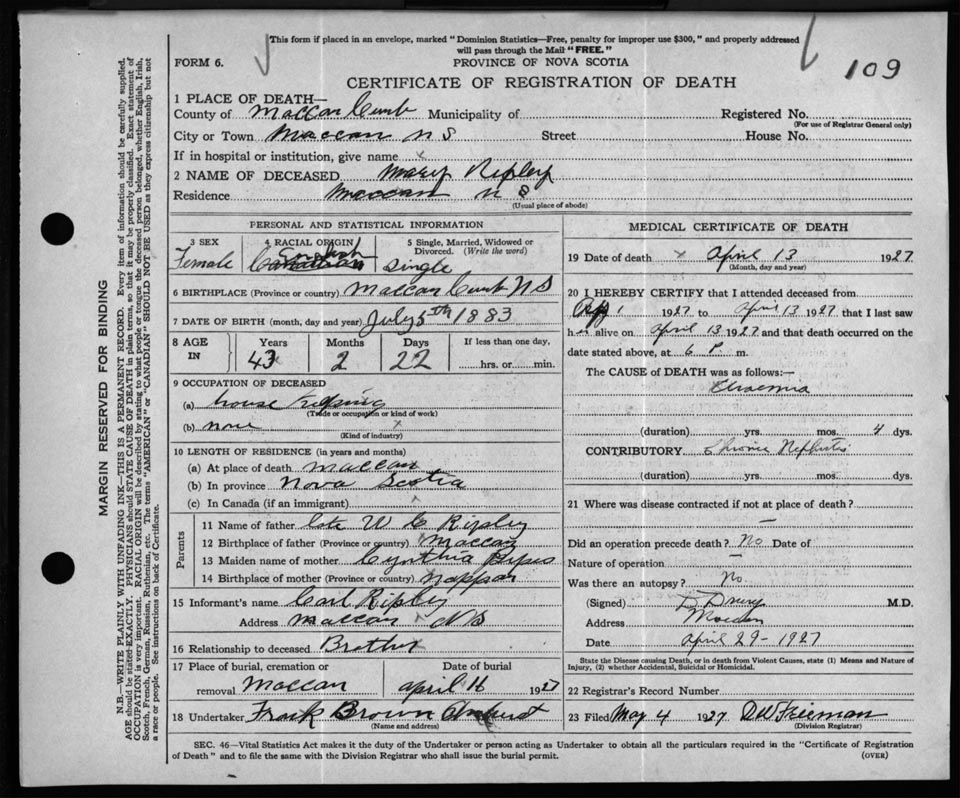 This form if placed in an envelope, marked "Dominion Statistics—Free, penalty for improper use $300," and properly addressed
will pass through the Mail "FREE."
FORM 6.
PROVINCE OF NOVA SCOTIA
109
CERTIFICATE OF REGISTRATION OF DEATH
1 PLACE OF DEATH—
County of Maccan Cumb Municipality of Registered No.
(For use of Registrar General only)
City or Town Maccan N S Street House No.
If in hospital or institution, give name x
2 NAME OF DECEASED Mary Ripley
Residence Maccan N S
(Usual place of abode)
PERSONAL AND STATISTICAL INFORMATION
3 SEX
Female
4 RACIAL ORIGIN
English
Canadian
5 Single, Married, Widowed or
Divorced. (Write the word)
Single
6 BIRTHPLACE (Province or country) Maccan Cumb N S
7 DATE OF BIRTH (month, day and year) July 5th 1883
8 AGE
IN
Years
43
Months
2
Days
22
If less than one day,
hrs. or min.
9 OCCUPATION OF DECEASED
(a) house keeping
(Trade or occupation or kind of work)
(b) none x
(Kind of industry)
10 LENGTH OF RESIDENCE (in years and months)
(a) At place of death Maccan
(b) In province Nova Scotia
(c) In Canada (if an immigrant)
Parents
11 Name of father W C Ripley
12 Birthplace of father (Province or country) Maccan
13 Maiden name of mother Cynthia
14 Birthplace of mother (Province or country) Nappan
15 Informant's name Carl Ripley
Address Maccan N S
16 Relationship to deceased Brother
17 Place of burial, cremation or
removal Maccan
Date of burial
April 16 1927
18 Undertaker Frank Brown Amherst
(Name and address)
MEDICAL CERTIFICATE OF DEATH
19 Date of death x April 13 1927
(Month, day and year)
20 I HEREBY CERTIFY that I attended deceased from
Apr 1 1927 to April 13 1927 that I last saw
her alive on April 13 1927 and that death occurred on the
date stated above, at 6 P. m.
The CAUSE of DEATH was as follows:—
Uraemia
(duration) yrs. mos. 4 dys.
CONTRIBUTORY Chronic Nephritis
(duration) yrs. mos. dys.
21 Where was disease contracted if not at place of death?
—
Did an operation precede death? No Date of
Nature of operation —
Was there an autopsy? No
(Signed) D Drury M.D.
Address Maccan
Date April 29 - 1927
State the Disease causing Death, or in death from Violent Causes, state (1) Means and Nature of
Injury, (2) whether Accidental, Suicidal or Homicidal.
22 Registrar's Record Number
23 Filed May 4 1927 D W Freeman
(Division Registrar)
SEC. 46—Vital Statistics Act makes it the duty of the Undertaker or person acting as Undertaker to obtain all the particulars required in the "Certificate of Registration
of Death" and to file the same with the Division Registrar who shall issue the burial permit.
(OVER)
MARGIN RESERVED FOR BINDING
N.B.—WRITE PLAINLY WITH UNFADING INK—THIS IS A PERMANENT RECORD. Every item of information should be carefully supplied.
AGE should be stated EXACTLY. PHYSICIANS should STATE CAUSE OF DEATH in plain terms, so that it may be properly classified. Exact statement of
OCCUPATION is very important. RACIAL ORIGIN will be described by stating to what people or tongue the deceased person belonged, whether English, Irish,
Scotch, French, German, Russian, Ruthenian, etc. The terms "AMERICAN" or "CANADIAN" SHOULD NOT BE USED as they express citizenship but not
a race or people. See instructions on back of Certificate.